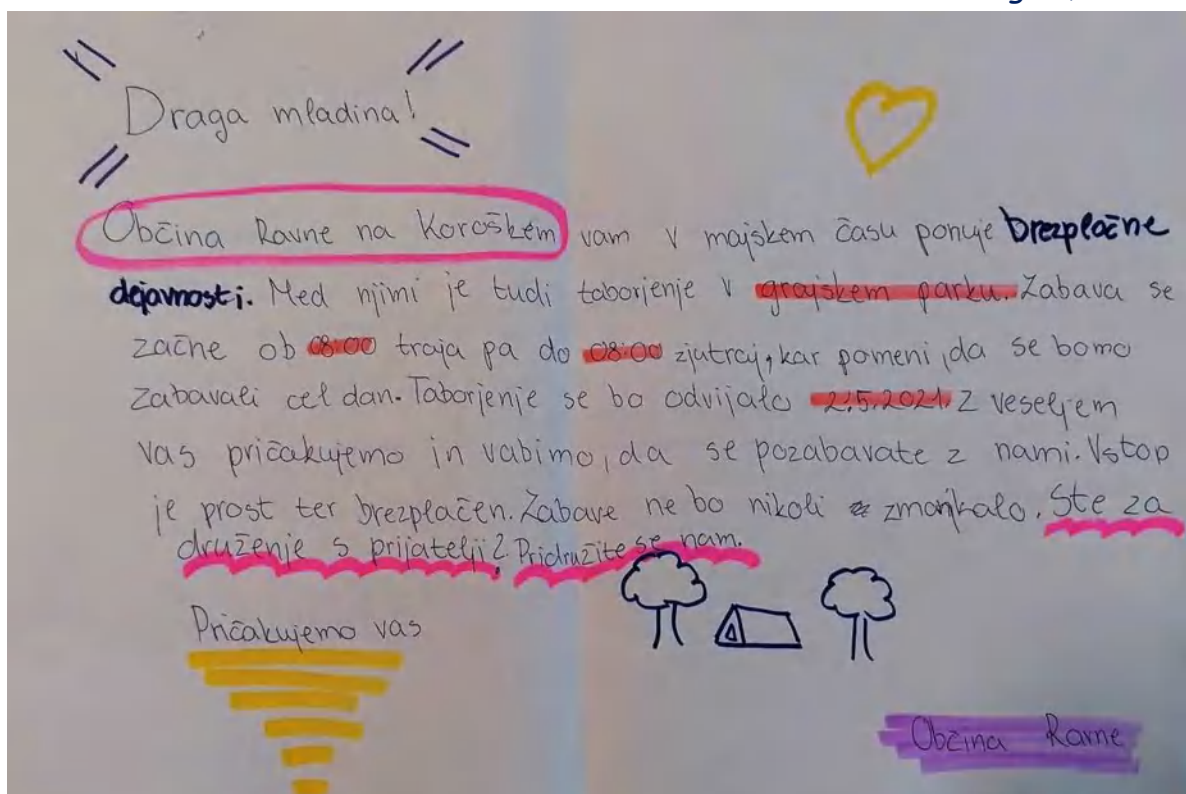 Draga mladina!
Občina Ravne na Koroškem vam v majskem času ponuje brezplačne
dejavnosti. Med njimi je tudi taborjenje v grajskem parku. Zabava se
začne ob 08:00 traja pa do 08:00 zjutraj, kar pomeni, da se bomo
zabavali cel dan. Taborjenje se bo odvijalo 2.5.2021. Z veseljem
vas pričakujemo in vabimo, da se pozabavate z nami. Vstop
je prost ter brezplačen. Zabave ne bo nikoli zmanjkalo. Ste za
druženje s prijatelji? Pridružite se nam.
Pričakujemo vas
Občina Ravne